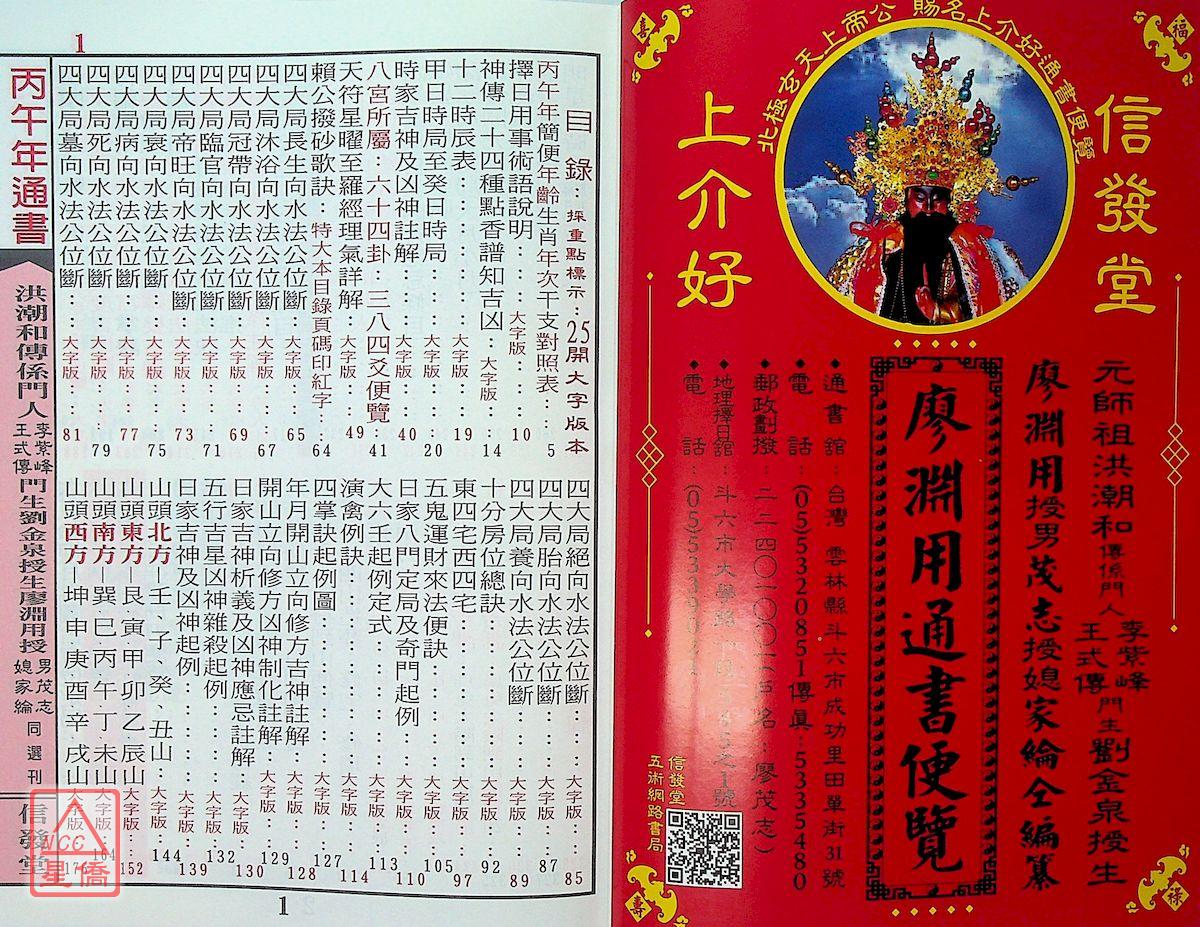 福
壽
祿
壽
北極玄天上帝公 賜名上介好通書便覽
信發堂
上介好
元師祖洪潮和傳係門人李紫峰王式傳門生劉金泉授生
廖淵用授男茂志授媳家綸仝編纂
廖淵用通書便覽
◆通書館:台灣 雲林縣斗六市成功里田單街31號
◆電 話:(05)5320851傳真:5335480
◆郵政劃撥:
戶名:廖茂志)
◆地理擇日館:斗六市大學路
◆電 話:(05)5339021
信發堂
五術網路書局
1
目錄:採重點標示:25開大字版本
丙午年簡便年齡生肖年次干支對照表::5
擇日用事術語說明::大字版::10
神傳二十四種點香譜知吉凶::大字版::14
十二時辰表::::大字版::19
甲日時局至癸日時局::::大字版::20
時家吉神及凶神註解::::大字版::40
八宮所屬:六十四卦:三八四爻便覽::41
天符星曜至羅經理氣詳解::大字版::49
賴公撥砂歌訣:特大本目錄頁碼印紅字::64
四大局長生向水法公位斷::大字版::65
四大局沐浴向水法公位斷::大字版::67
四大局冠帶向水法公位斷::大字版::69
四大局臨官向水法公位斷::大字版::71
四大局帝旺向水法公位斷::大字版::73
四大局衰向水法公位斷:::大字版::75
四大局病向水法公位斷:::大字版::77
四大局死向水法公位斷:::大字版::79
四大局墓向水法公位斷:::大字版::81
四大局絕向水法公位斷:::大字版::85
四大局胎向水法公位斷:::大字版::87
四大局養向水法公位斷:::大字版::89
十分房位總訣::::大字版::92
東四宅西四宅::::大字版::97
五鬼運財來法便訣::::大字版::105
日家八門定局及奇門起例::大字版::110
大六壬起例定式::::大字版::113
演禽例訣::::大字版::114
四掌訣起例圖::::大字版::127
年月開山立向修方吉神註解:大字版::128
開山立向修方凶神制化註解:大字版::129
日家吉神析義及凶神應忌註解 大字版:130
五行吉星凶神雜殺起例::大字版::132
日家吉神及凶神起例::大字版::139
山頭北方-壬、子、癸、丑山:大字版::144
山頭東方-艮、寅、甲、卯、乙、辰山 大字版:152
山頭南方-巽、巳、丙、午、丁、未山 大字版:164
山頭西方-坤、申、庚、酉、辛、戌山 大字版
丙午年通書
洪潮和傳係門人李紫峰王式傳門生劉金泉授生廖淵用授男茂志媳家綸同選刊
信發堂
1
NCC
星僑